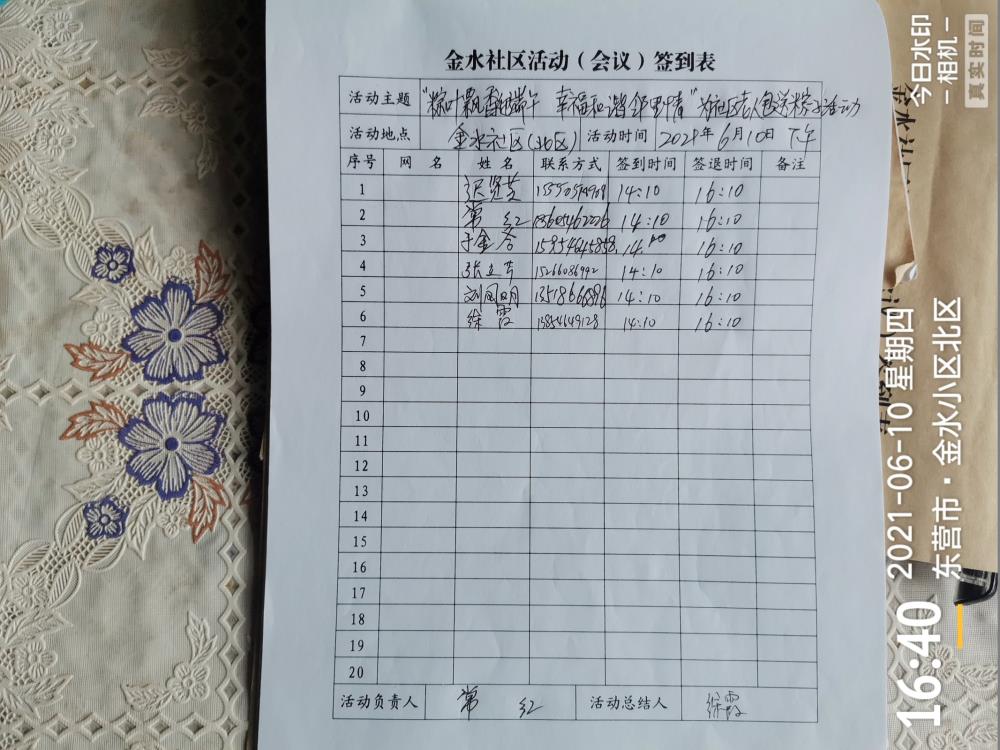 金水社区活动（会议）签到表
活动主题 "粽叶飘香迎端午 幸福和谐邻里情"为社区老人包送粽子活动
活动地点 金水社区(北区) 活动时间 2021年6月10日 下午
序号 网名 姓名 联系方式 签到时间 签退时间 备注
1 迟贤芝 14:10 16:10
2 常红 13605462226 14:10 16:10
3 于金 14: 16:10
4 张立芹 15266086992 14:10 16:10
5 刘凤明 14:10 16:10
6 徐霞 15854649128 14:10 16:10
7
8
9
10
11
12
13
14
15
16
17
18
19
20
活动负责人 常红 活动总结人 徐霞
今日水印
-相机-
真实时间
16:40 2021-06-10 星期四
东营市·金水小区北区